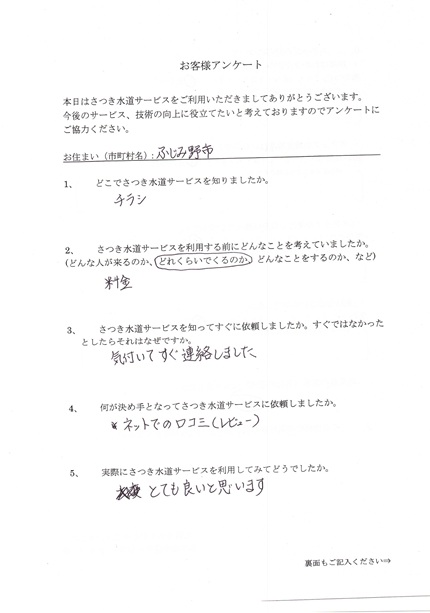 お客様アンケート
本日はさつき水道サービスをご利用いただきましてありがとうございます。
今後のサービス、技術の向上に役立てたいと考えておりますのでアンケートに
ご協力ください。
お住まい（市町村名）：ふじみ野市
1、 どこでさつき水道サービスを知りましたか。
チラシ
2、 さつき水道サービスを利用する前にどんなことを考えていましたか。
(どんな人が来るのか、どれくらいでくるのか、どんなことをするのか、など)
料金
3、 さつき水道サービスを知ってすぐに依頼しましたか。すぐではなかった
としたらそれはなぜですか。
気付いてすぐ連絡しました
4、 何が決め手となってさつき水道サービスに依頼しましたか。
ネットでの口コミ(レビュー)
5、 実際にさつき水道サービスを利用してみてどうでしたか。
とても良いと思います
裏面もご記入ください⇒